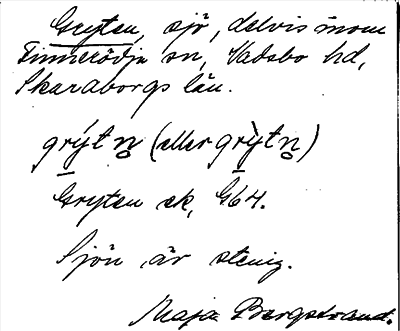 Gryten, sjö, delvis inom
Finnerödja sn, Vadsbo hd,
Skaraborgs län.
grýt n̥ (eller grỳt n̥)
Gryten ek, G64.
Sjön är stenig.
Maja Bergstrand.